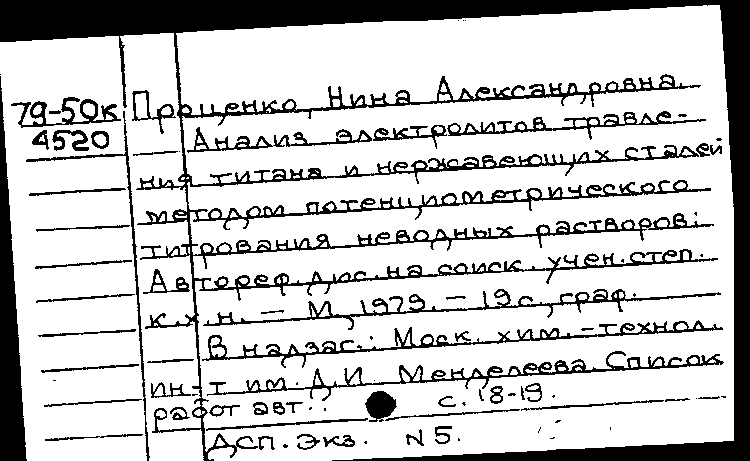 79-50к Проценко, Нина Александровна.
4520 Анализ электролитов травле-
ния титана и нержавеющих сталей
методом потенциометрического
титрования неводных растворов:
Автореф. дис. на соиск. учен. степ.
к.х.н. — М, 1979. — 19 с., граф.
В надзаг.: Моск. хим.-технол.
ин-т им. Д.И Менделеева. Список
работ авт.: с. 18-19.
ДСП. Экз. N 5.